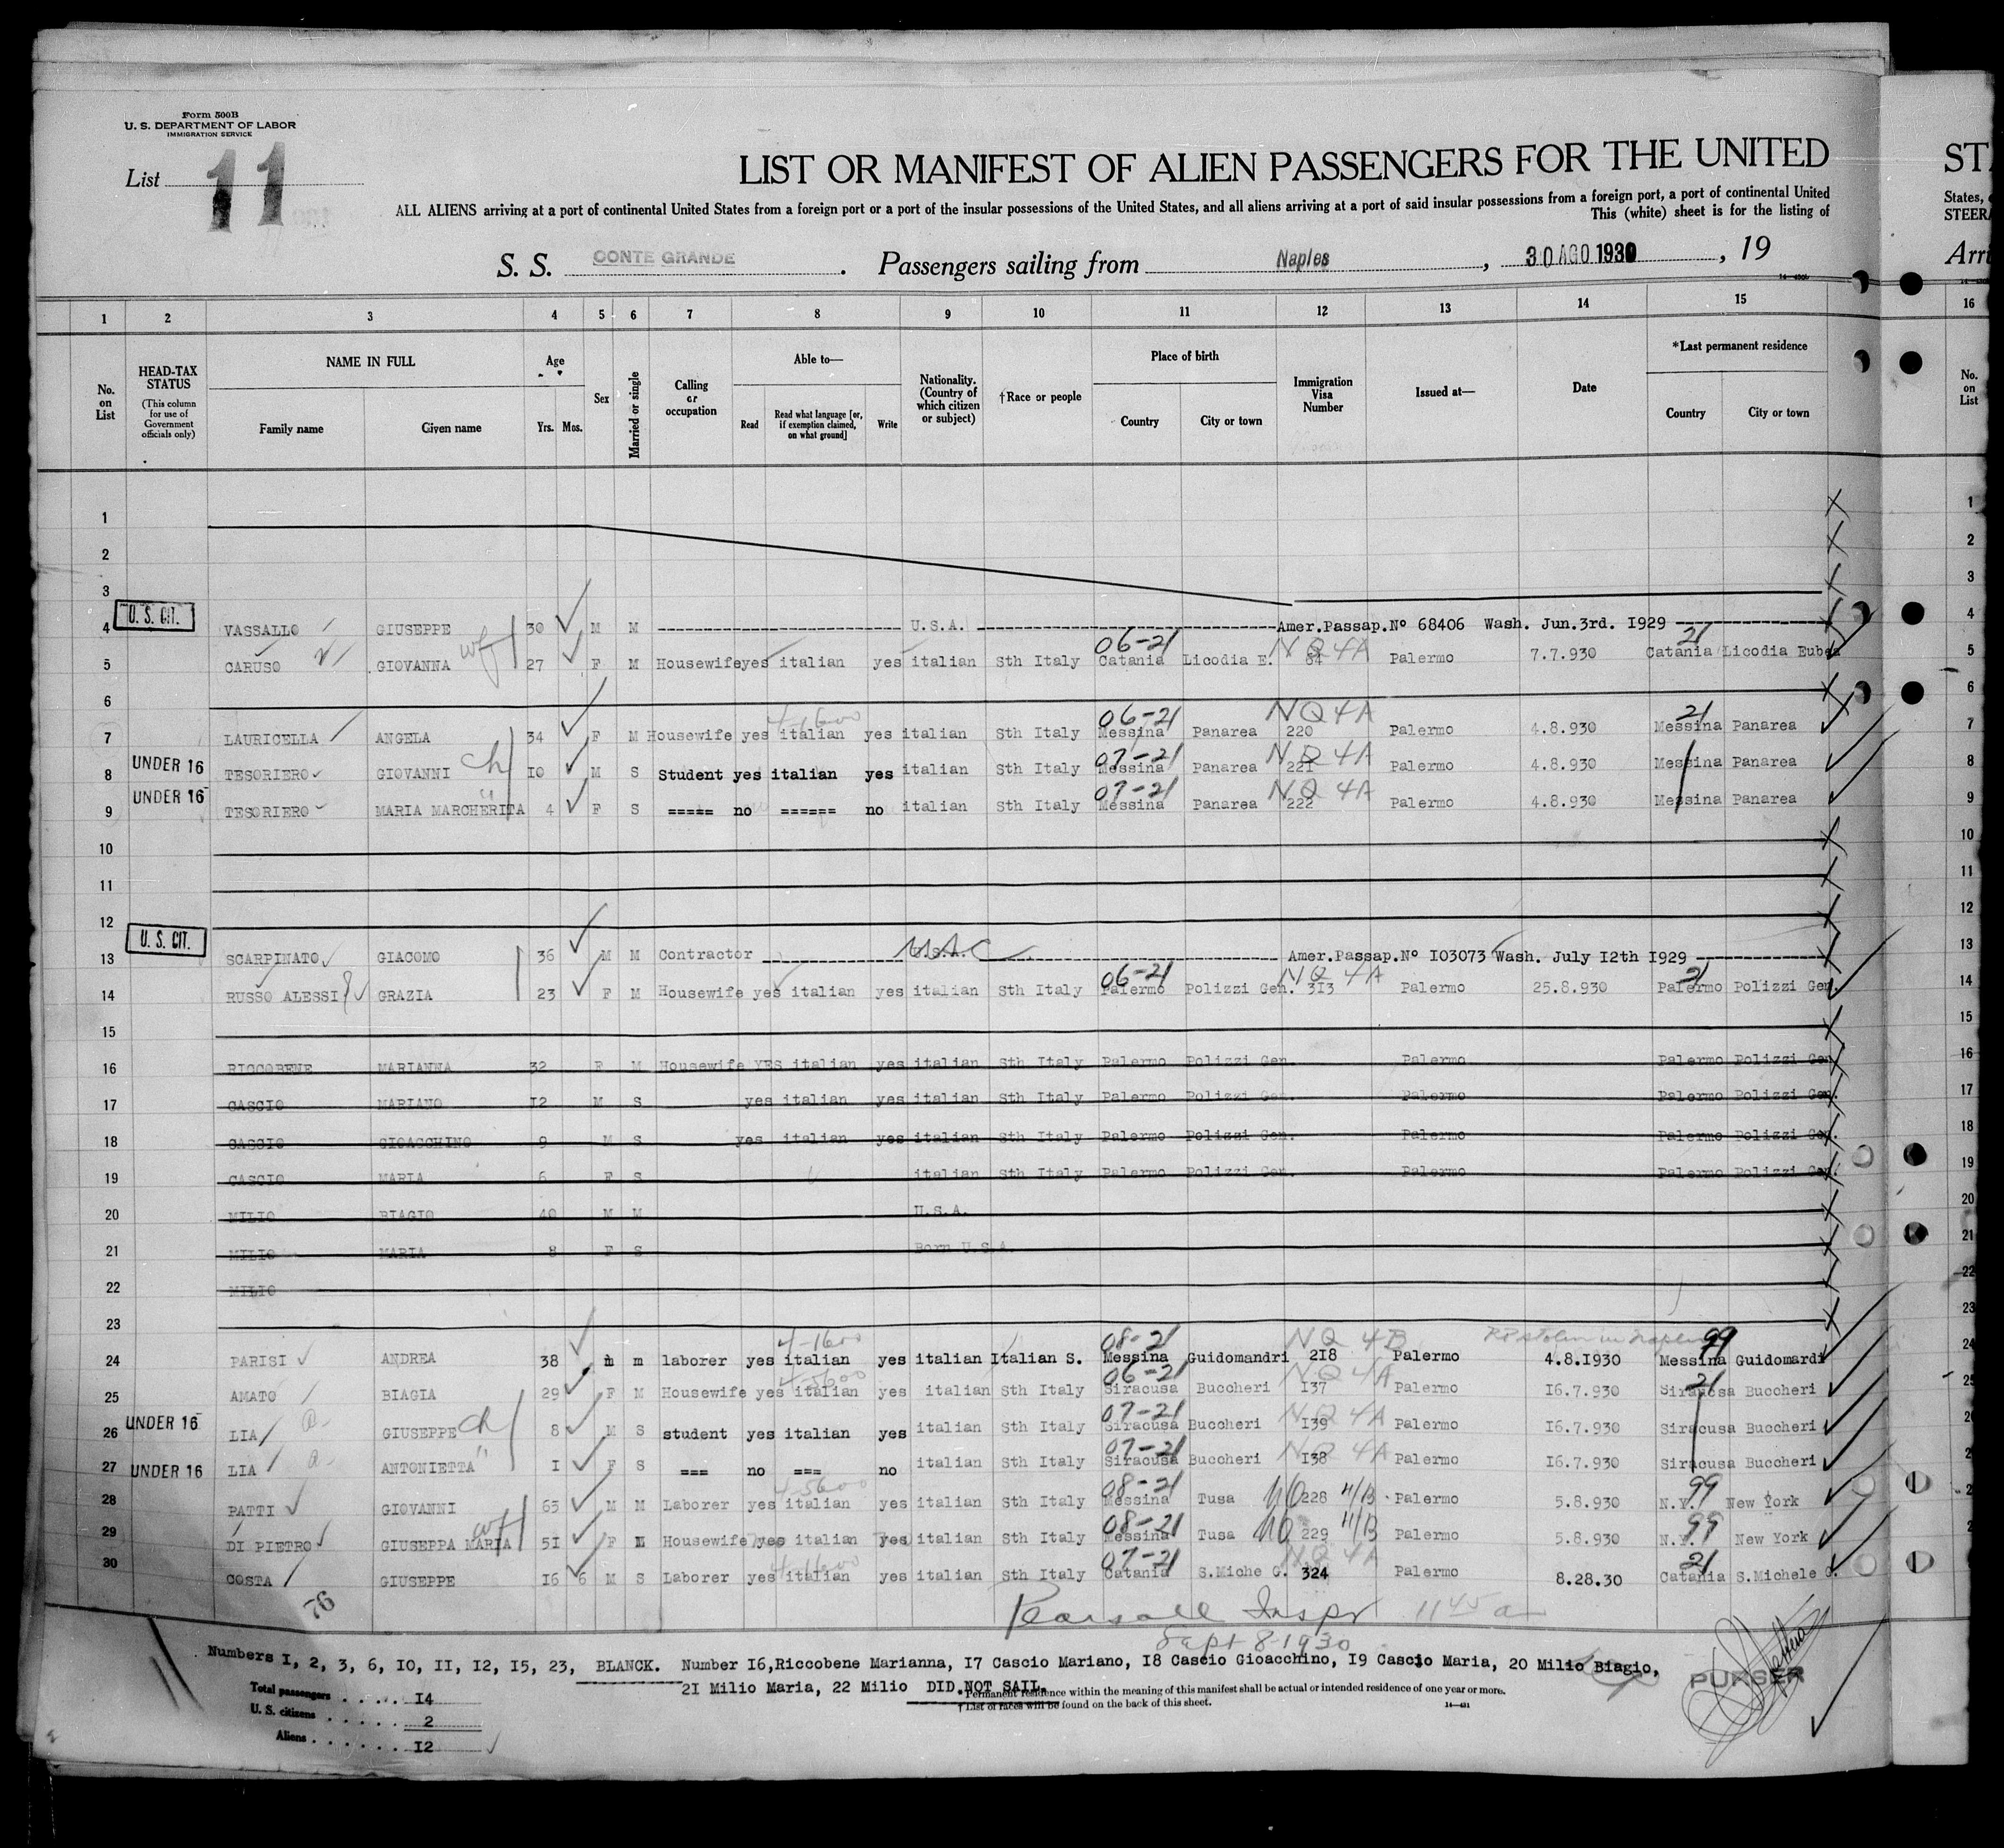 Form 500B
U. S. DEPARTMENT OF LABOR
IMMIGRATION SERVICE
List 11
LIST OR MANIFEST OF ALIEN PASSENGERS FOR THE UNITED
ST
ALL ALIENS arriving at a port of continental United States from a foreign port or a port of the insular possessions of the United States, and all aliens arriving at a port of said insular possessions from a foreign port, a port of continental United
States,
This (white) sheet is for the listing of
STEER
S. S. CONTE GRANDE . Passengers sailing from Naples , 30 AGO 1930 , 19
Arri
1 2 3 4 5 6 7 8 9 10 11 12 13 14 15 16
No. on List
HEAD-TAX STATUS (This column for use of Government officials only)
NAME IN FULL Family name Given name
Age Yrs. Mos.
Sex
Married or single
Calling or occupation
Able to— Read Read what language [or, if exemption claimed, on what ground] Write
Nationality. (Country of which citizen or subject)
†Race or people
Place of birth Country City or town
Immigration Visa Number
Issued at—
Date
*Last permanent residence Country City or town
No. on List
1 1
2 2
3 3
U. S. CIT.
4 VASSALLO GIUSEPPE 30 M M U.S.A. Amer.Passap.Nº 68406 Wash. Jun.3rd. I929 4
5 CARUSO GIOVANNA wf 27 F M Housewife yes italian yes italian Sth Italy 06-21 Catania Licodia E. NQ 4A 84 Palermo 7.7.930 21 Catania Licodia Eubea 5
6 6
7 LAURICELLA ANGELA 34 F M Housewife yes 4-1600 italian yes italian Sth Italy 06-21 Messina Panarea NQ 4A 220 Palermo 4.8.930 21 Messina Panarea 7
8 UNDER 16 TESORIERO GIOVANNI ch I0 M S Student yes italian yes italian Sth Italy 07-21 Messina Panarea NQ 4A 221 Palermo 4.8.930 Messina Panarea 8
9 UNDER 16 TESORIERO MARIA MARCHERITA " 4 F S ===== no ====== no italian Sth Italy 07-21 Messina Panarea NQ 4A 222 Palermo 4.8.930 Messina Panarea 9
10 10
11 11
12 12
U. S. CIT.
13 SCARPINATO GIACOMO 36 M M Contractor U.S.A. Amer.Passap.Nº I03073 Wash. July I2th I929 13
14 RUSSO ALESSI GRAZIA 23 F M Housewife yes italian yes italian Sth Italy 06-21 Palermo Polizzi Gen. NQ 4A 3I3 Palermo 25.8.930 21 Palermo Polizzi Gen. 14
15 15
16 RICCOBENE MARIANNA 32 F M Housewife YES italian yes italian Sth Italy Palermo Polizzi Gen. Palermo Palermo Polizzi Gen. 16
17 CASCIO MARIANO I2 M S yes italian yes italian Sth Italy Palermo Polizzi Gen. Palermo Palermo Polizzi Gen. 17
18 CASCIO GIOACCHINO 9 M S yes italian yes italian Sth Italy Palermo Polizzi Gen. Palermo Palermo Polizzi Gen. 18
19 CASCIO MARIA 6 F S italian Sth Italy Palermo Polizzi Gen. Palermo Palermo Polizzi Gen. 19
20 MILIO BIAGIO 40 M M U.S.A. 20
21 MILIO MARIA 8 F S Born U.S.A. 21
22 MILIO 22
23 23
24 PARISI ANDREA 38 m m laborer yes 4-1600 italian yes italian Italian S. 08-21 Messina Guidomandri NQ 4B 2I8 Palermo 4.8.I930 99 Messina Guidomardi 24
25 AMATO BIAGIA 29 F M Housewife yes 4-5600 italian yes italian Sth Italy 06-21 Siracusa Buccheri NQ 4A I37 Palermo I6.7.930 21 Siracusa Buccheri 25
26 UNDER 16 LIA GIUSEPPE ch 8 M S student yes italian yes italian Sth Italy 07-21 Siracusa Buccheri NQ 4A I39 Palermo I6.7.930 Siracusa Buccheri
27 UNDER 16 LIA ANTONIETTA " I F S === no === no italian Sth Italy 07-21 Siracusa Buccheri NQ 4A I38 Palermo I6.7.930 Siracusa Buccheri
28 PATTI GIOVANNI 65 M M Laborer yes 4-5600 italian yes italian Sth Italy 08-21 Messina Tusa NQ 228 4/B Palermo 5.8.930 99 N.Y. New York
29 DI PIETRO GIUSEPPA MARIA wf 5I F M Housewife yes italian yes italian Sth Italy 08-21 Messina Tusa NQ 229 4/B Palermo 5.8.930 99 N.Y. New York
30 COSTA GIUSEPPE I6 6 M S Laborer yes 4-1600 italian yes italian Sth Italy 07-21 Catania S.Miche G. NQ 4A 324 Palermo 8.28.30 21 Catania S.Michele G.
76
Pearsall Inspr 11 45 a
Sept 8-1930
Numbers I, 2, 3, 6, I0, II, I2, I5, 23, BLANCK. Number I6,Riccobene Marianna, I7 Cascio Mariano, I8 Cascio Gioacchino, I9 Cascio Maria, 20 Milio Biagio,
2I Milio Maria, 22 Milio DID.NOT SAIL.
Total passengers . . . . . I4
U. S. citizens . . . . . 2
Aliens . . . . . . I2
Permanent residence within the meaning of this manifest shall be actual or intended residence of one year or more.
† List of races will be found on the back of this sheet.
PURSER